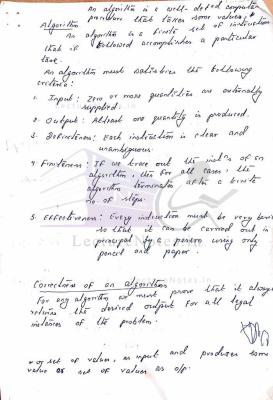 An algorithm is a well-defined computer
procedure that takes some values*
Algorithm
An algorithm is a finite set of instruction
that if followed accomplishes a particular
task.
An algorithm must satisfies the following
criteria:
1. Input: Zero or more quantities are externally
supplied.
2. Output: Atleast one quantity is produced.
3. Definiteness: Each instruction is clear and
unambiguous.
4. Finiteness: If we trace out the inst^s of an
algorithm, then for all cases, the
algorithm terminates after a finite
no of steps.
5. Effectiveness: Every instruction must be very basic
so that it can be carried out in
principal by a person using only
pencil and paper.
Correctness of an algorithm
For any algorithm we must prove that it always
returns the desired output for all legal
instances of the problem.
* or set of values, as input and produces some
value or set of values as o/p.